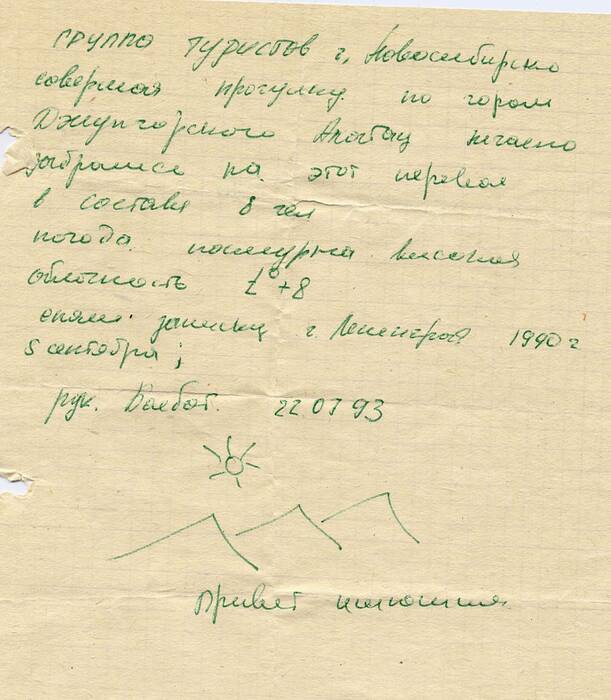 группа туристов г. Новосибирска
совершая прогулку по горам
Джунгарского Алатау нечаено
забрались на этот перевал
в составе 8 чел
погода пасмурна высокая
облачность t° +8
сняли записку г. Ленинград 1990 г
5 сентября;
рук. 22.07 93
Привет